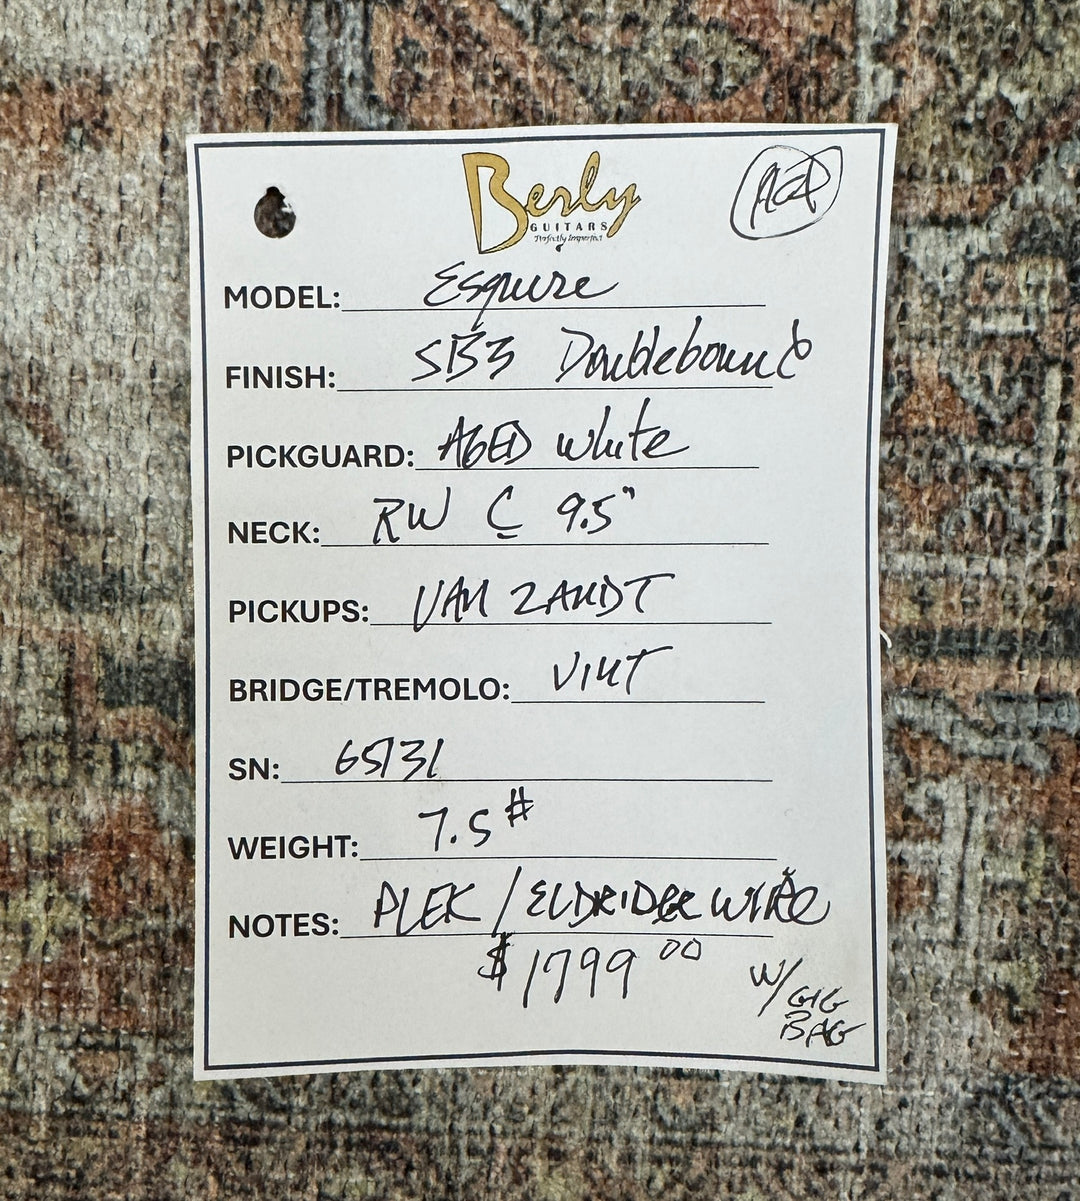 Berly
GUITARS
Perfectly Imperfect
MODEL: Esquire
FINISH: SB3 Doublebound
PICKGUARD: AGED white
NECK: RW C 9.5"
PICKUPS: VAN ZANDT
BRIDGE/TREMOLO: VINT
SN: 65131
WEIGHT: 7.5#
NOTES: PLEK / ELDRIDGE WIRE
$1799 00
W/ GIG
BAG